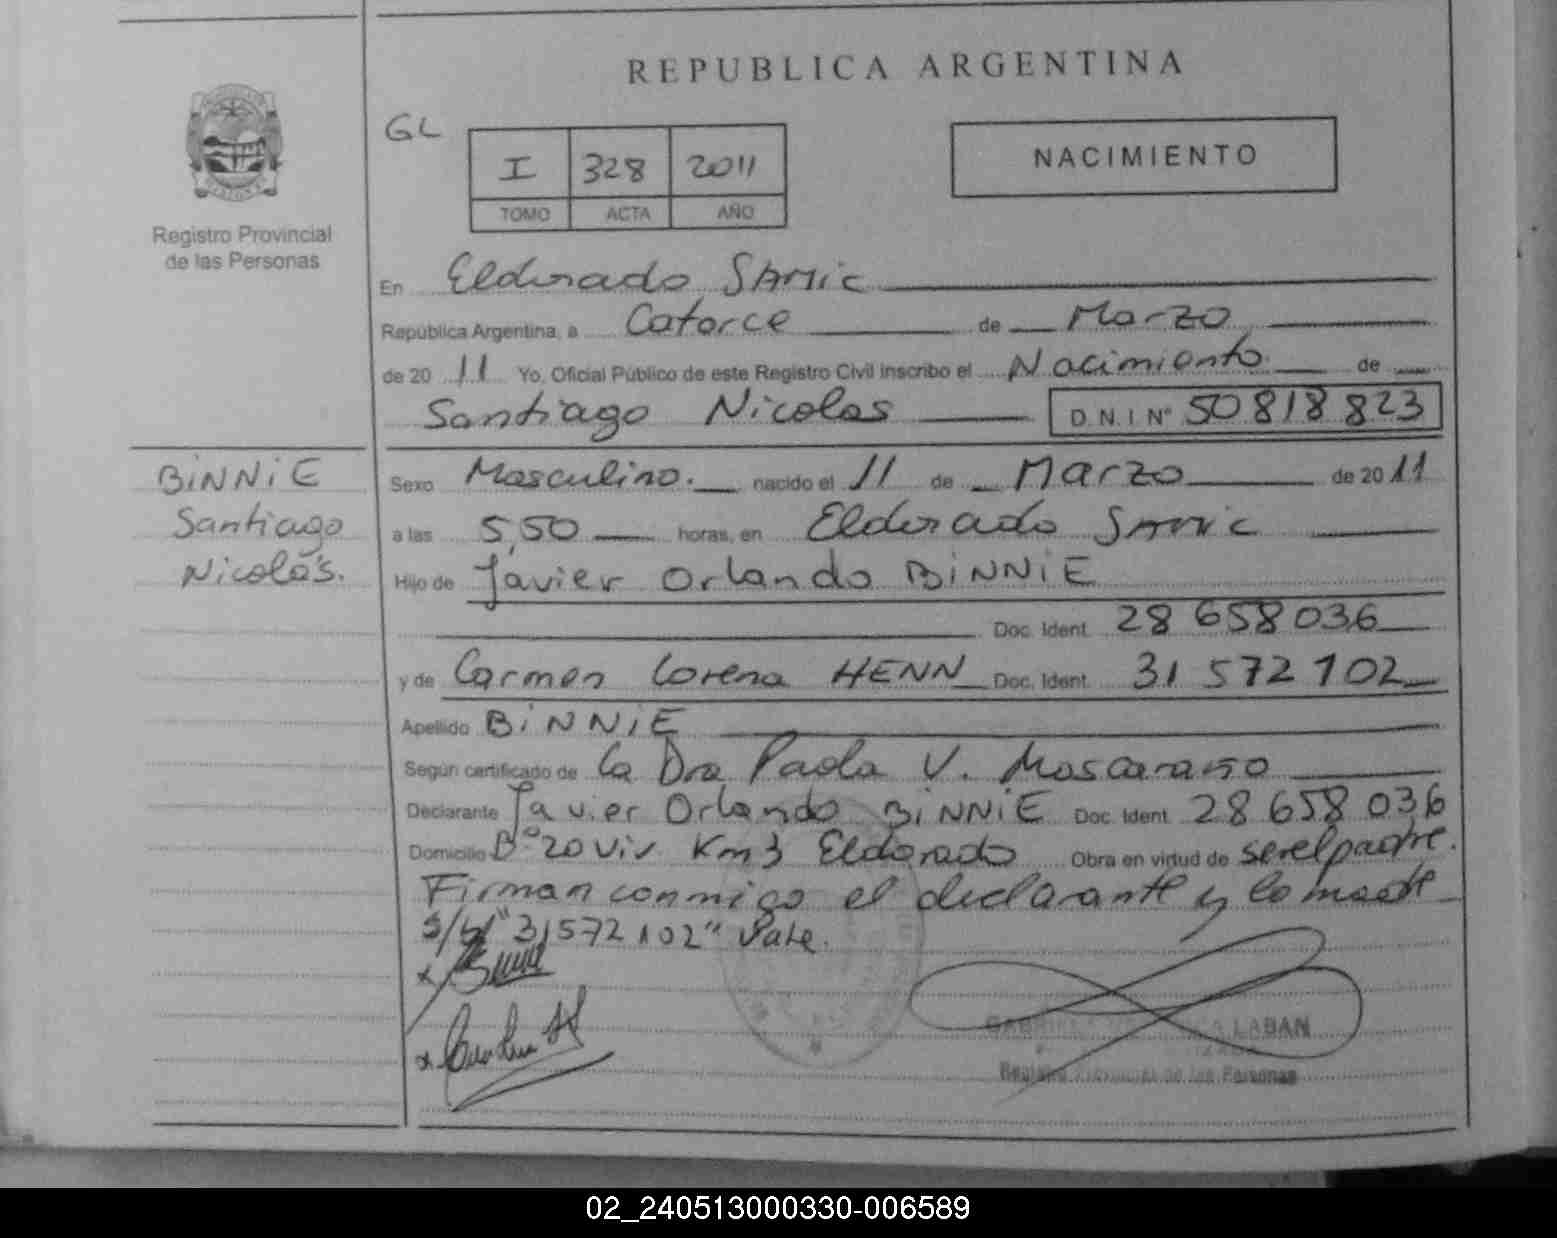 REPUBLICA ARGENTINA
GL
I 328 2011
TOMO ACTA AÑO
NACIMIENTO
Registro Provincial
de las Personas
En Eldorado SAMIC
República Argentina, a Catorce de Marzo
de 20 11 Yo, Oficial Público de este Registro Civil inscribo el Nacimiento de
Santiago Nicolas D.N.I Nº 50818823
BiNNiE
Santiago
Nicolás.
Sexo Masculino. nacido el 11 de Marzo de 20 11
a las 5,50 horas, en Eldorado SAMIC
Hijo de Javier Orlando BiNNiE
Doc. Ident. 28 658 036
y de Carmen Lorena HENN Doc. Ident. 31 572 102
Apellido BiNNiE
Según certificado de la Dra Paola V.
Declarante Javier Orlando BiNNiE Doc. Ident. 28 658 036
Domicilio Bº 20 Viv. Km 3 Eldorado Obra en virtud de ser el padre.
Firman conmigo el declarante y la madre
S/b/ "31572102" Vale.
GABRIELA LABAN
Registro Provincial de las Personas
02_240513000330-006589